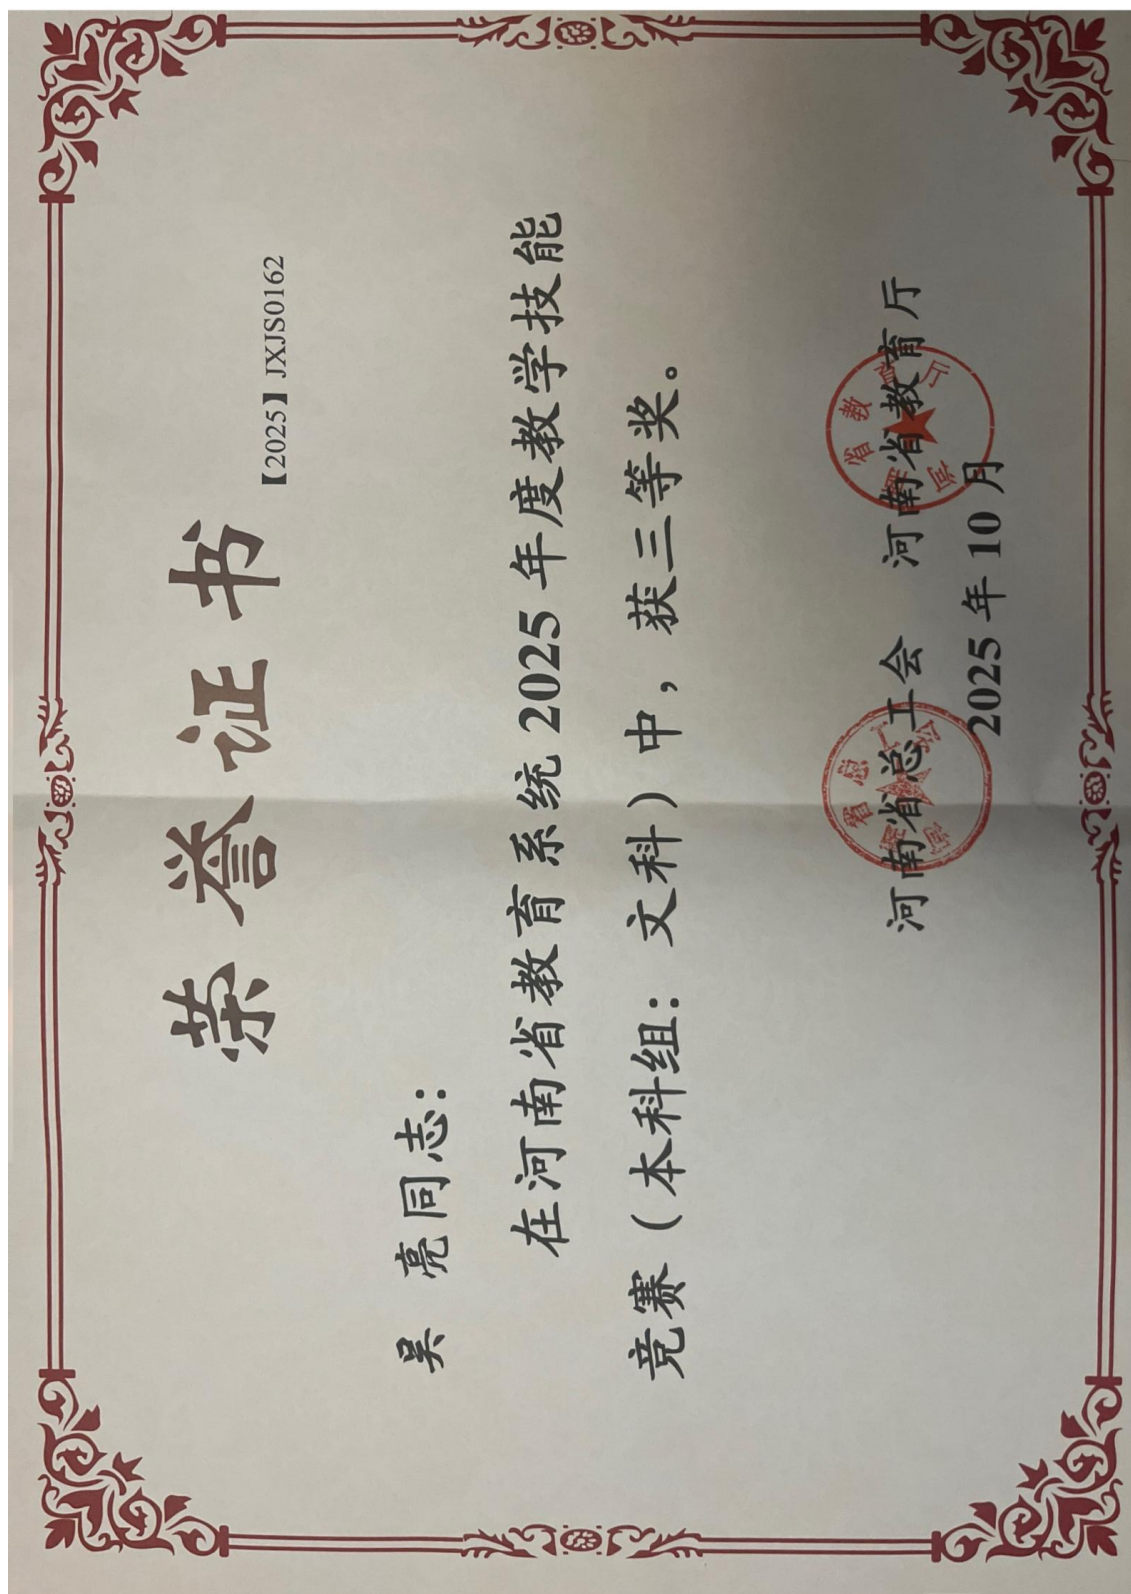 荣誉证书
【2025】JXJS0162
吴 亮同志：
在河南省教育系统 2025 年度教学技能
竞赛（本科组：文科）中，获三等奖。
河南省总工会 河南省教育厅
2025 年 10 月